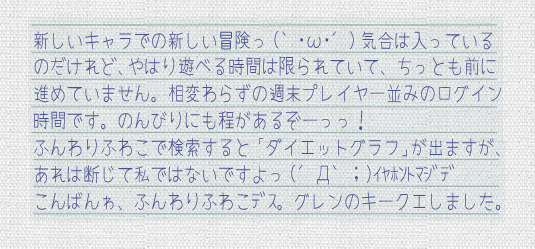 新しいキャラでの新しい冒険っ(｀・ω・´)気合は入っている
のだけれど、やはり遊べる時間は限られていて、ちっとも前に
進めていません。相変わらずの週末プレイヤー並みのログイン
時間です。のんびりにも程があるぞーっっ！
ふんわりふわこで検索すると「ダイエットグラフ」が出ますが、
あれは断じて私ではないですよっ(´Д｀;)ｲﾔﾎﾝﾄﾏｼﾞﾃﾞ
こんばんぁ、ふんわりふわこデス。グレンのキークエしました。